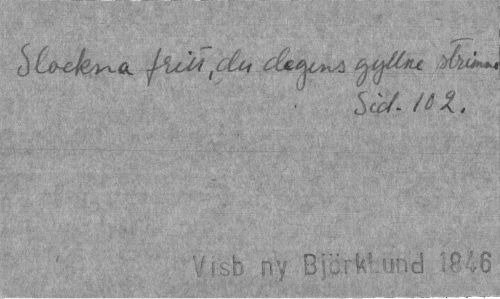 Slockna fritt, du dagens gyllne strimma
Sid. 102.
Visb ny Björklund 1846